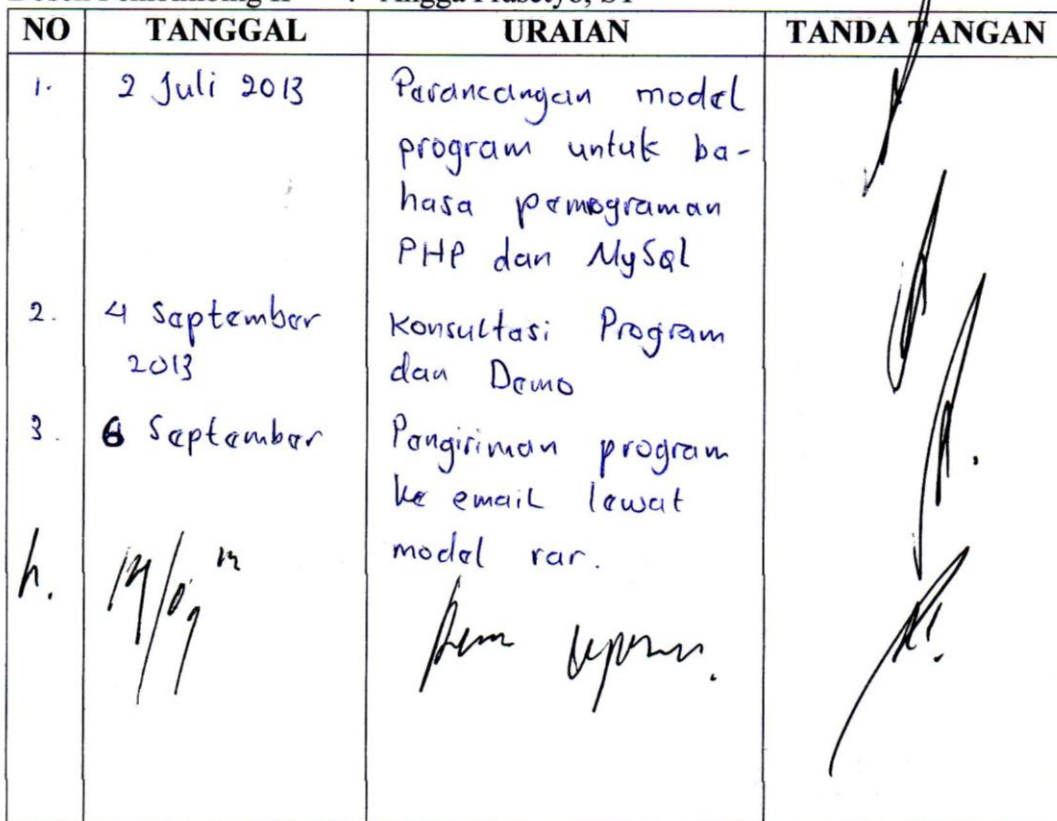 : Angga Prasetyo, ST
NO TANGGAL URAIAN TANDA TANGAN
1. 2 Juli 2013 Perancangan model
program untuk ba-
hasa pemograman
PHP dan MySql
2. 4 September Konsultasi Program
2013 dan Demo
3. 6 September Pengiriman program
ke email lewat
model rar.